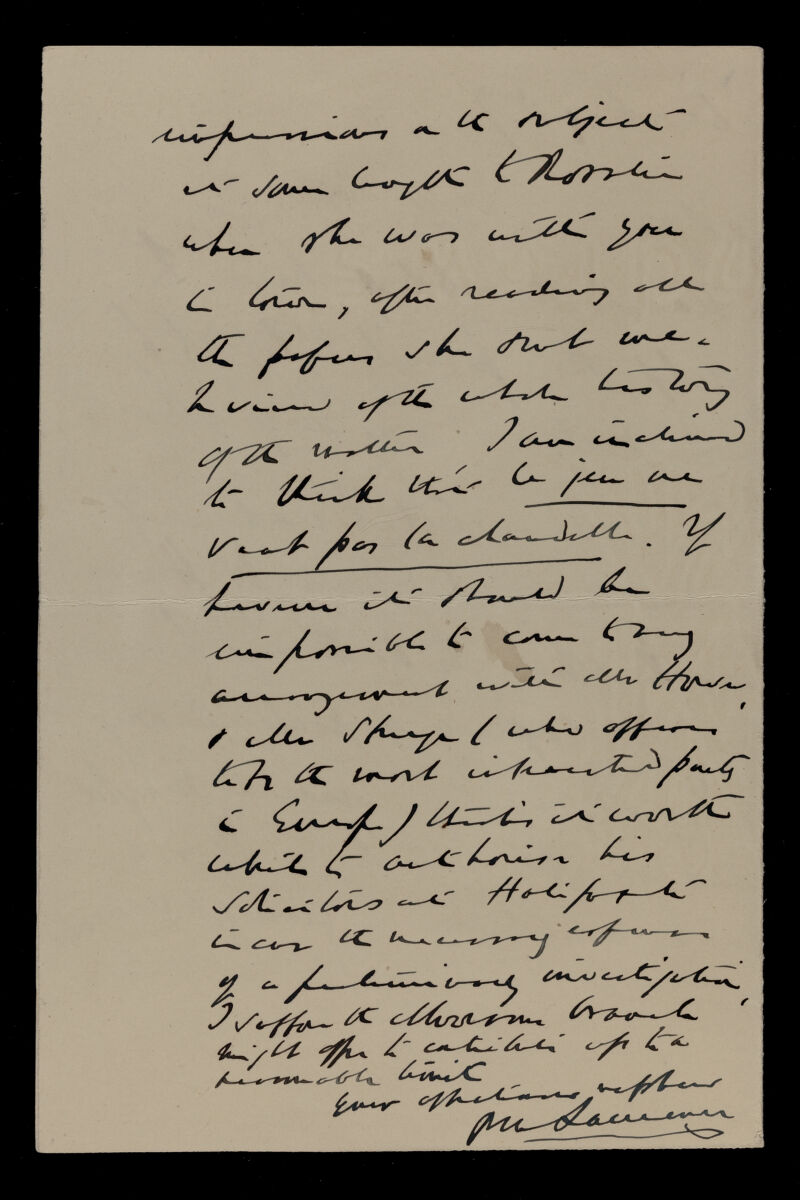 impressions on the subject
at some length to Rosalie
when she was with you
in town, after reading all
the papers she sent me.
In view of the whole history
of the matter I am inclined
to think that le jeu ne
vaut pas la chandelle. If
however it should be
impossible to come to any
arrangement with Mr Howe,
& Mr (who appears
to be the most interested party
in Europe) thinks it worth
while to authorise his
solicitors at Halifax to
incur the necessary expense
of a preliminary investigation,
I suppose the branch
might offer to contribute up to a
reasonable limit
Your affectionate nephew